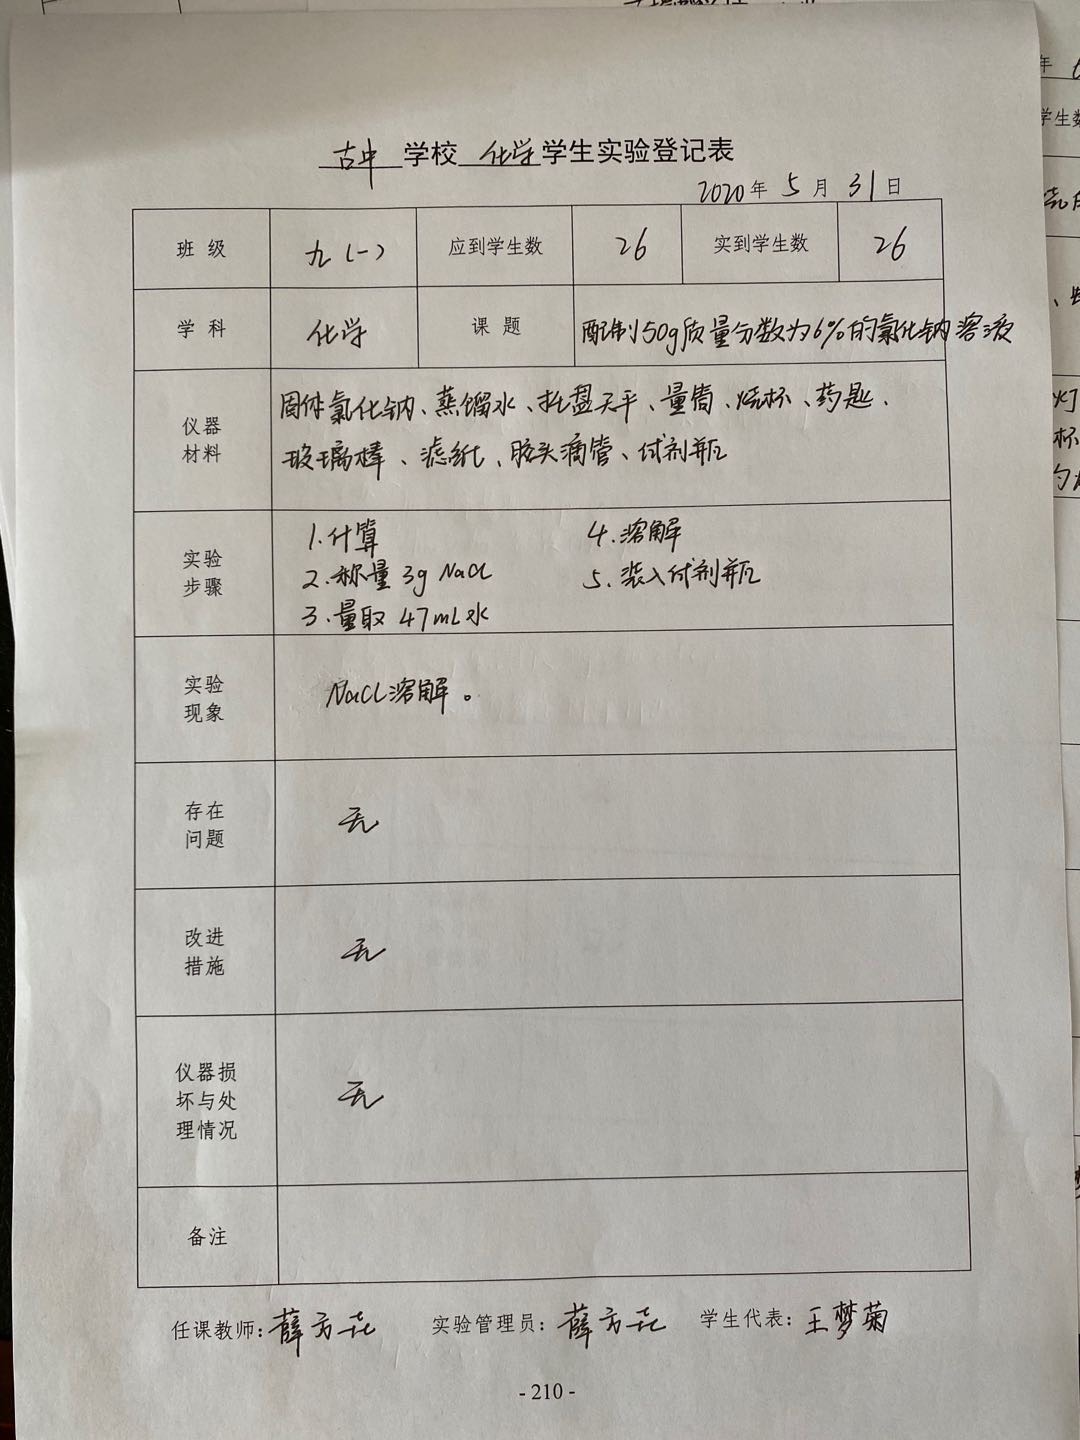 古中 学校 化学 学生实验登记表
2020年 5 月 31 日
班 级 九(一) 应到学生数 26 实到学生数 26
学 科 化学 课 题 配制50g质量分数为6%的氯化钠溶液
仪器
材料
固体氯化钠、蒸馏水、托盘天平、量筒、烧杯、药匙、
玻璃棒、滤纸、胶头滴管、试剂瓶
实验
步骤
1.计算
2.称量 3g NaCl
3.量取 47mL水
4.溶解
5.装入试剂瓶
实验
现象
NaCl溶解。
存在
问题
无
改进
措施
无
仪器损
坏与处
理情况
无
备注
任课教师:薛方 实验管理员:薛方 学生代表:王梦菊
- 210 -
年
学生数